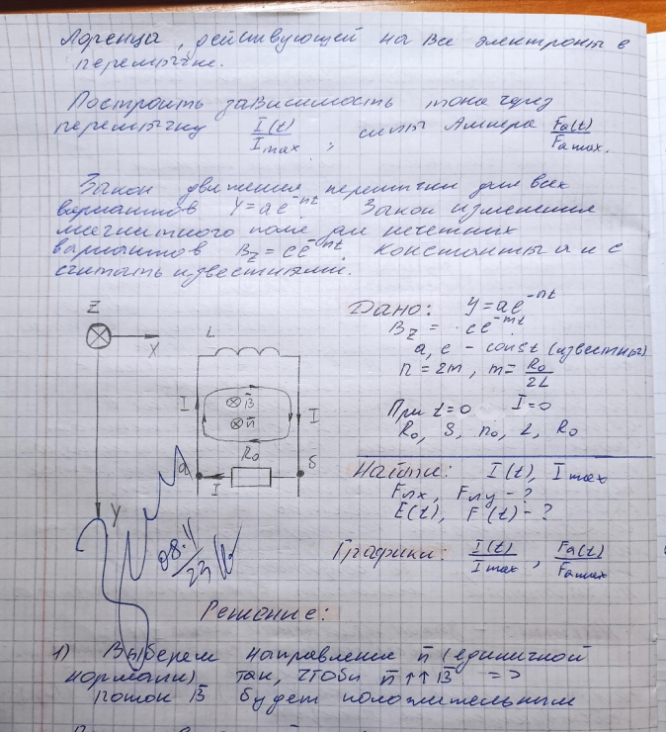 Лоренца, действующей на все электроны в
перемычке.
Построить зависимость тока через
перемычку I(t)/Imax, силы Ампера Fa(t)/Fa max.
Закон движения перемычки для всех
вариантов Y=ae^-nt. Закон изменения
магнитного поля для нечетных
вариантов Bz = ce^-mt. Константы a и c
считать известными.
Дано: Y=ae^-nt
Bz = ce^-mt
a, c - const (известны)
n = 2m, m = R0/2L
При t=0 I=0
R0, S, n0, L, R0
Найти: I(t), Imax
Fлx, Fлy - ?
E(t), F(t) - ?
Графики: I(t)/Imax, Fa(t)/Fa max
Z
X
Y
L
I
⊗ B̄
⊗ n̄
I
R0
a
б
I
08.11/23
Решение:
1) Выберем направление n̄ (единичной
нормали) так, чтобы n̄ ↑↑ B̄ =>
поток B̄ будет положительным